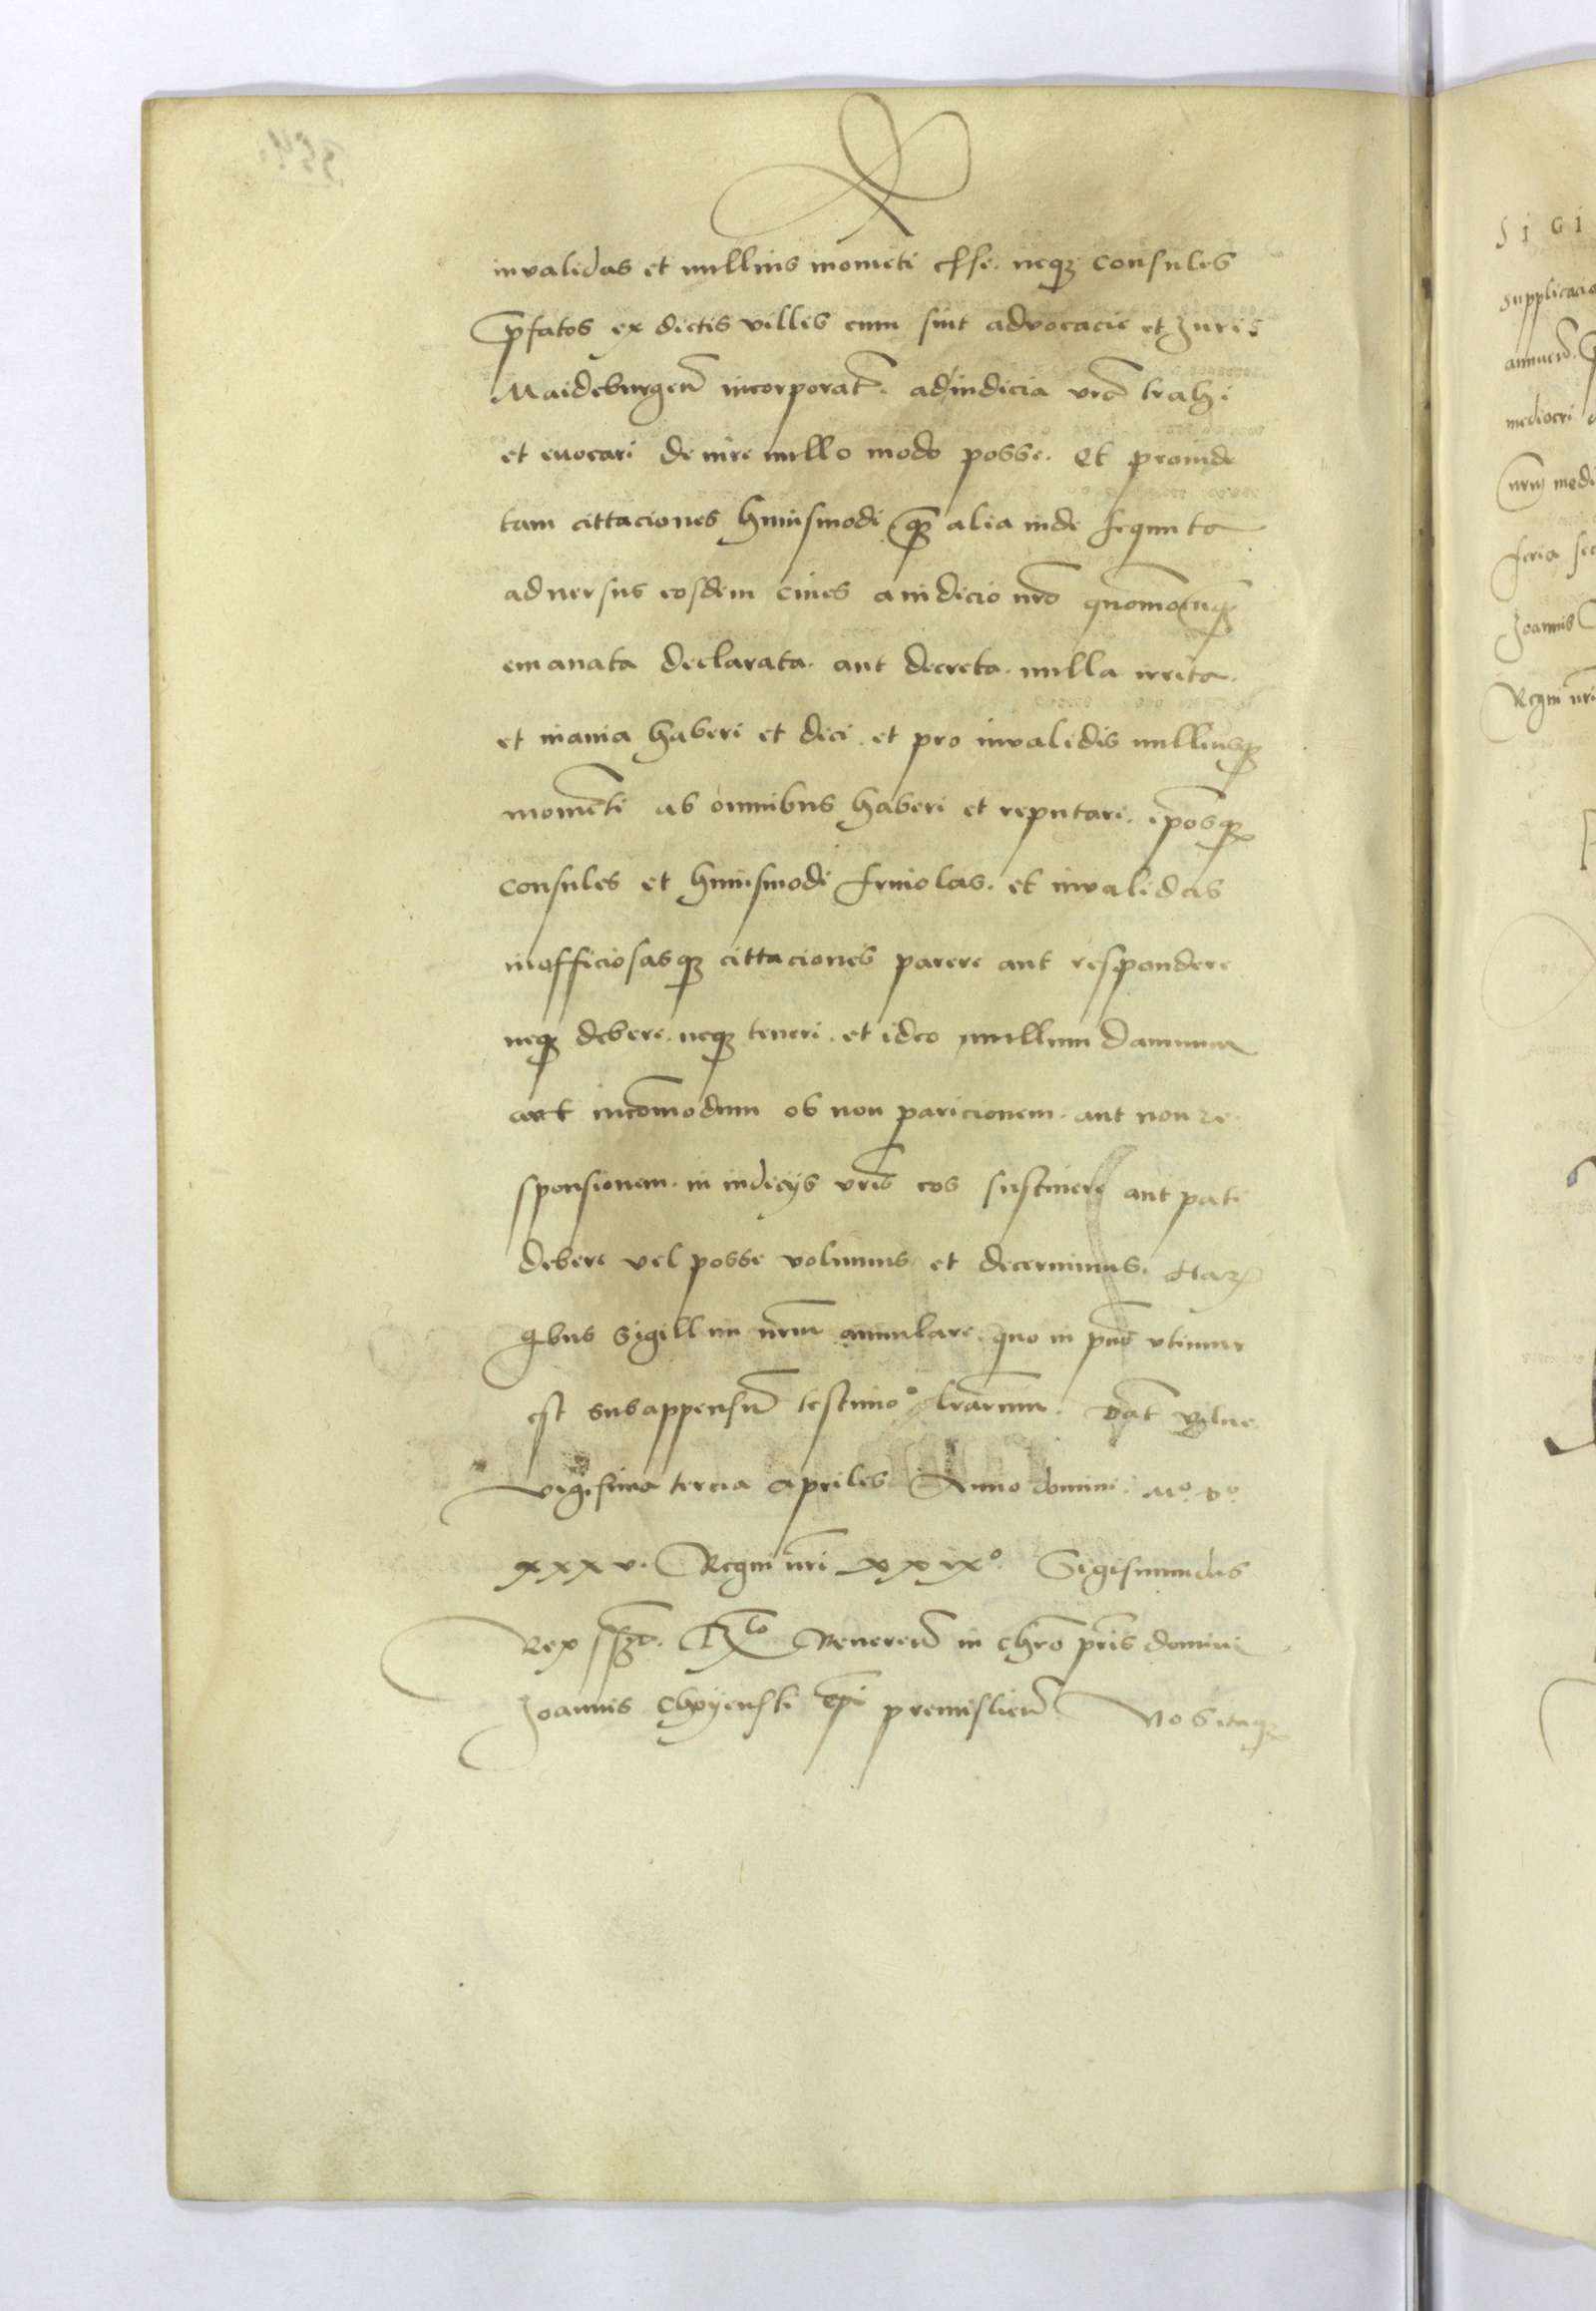 invalidas et nullius mometi esse. neqꝫ consules
p̄fatos ex dictis villis cum sint advocacie et Juris
Maideburgen̄ incorporat̄. ad iudicia vr̄a trahi
et euocari de iure nullo modo posse. Et proinde
tam cittaciones huiusmodi q̄ꝫ alia inde sequuta
aduersus eosdem ciues a iudicio nr̄o quomo cuqꝫ
emanata declarata. aut decreta. nulla irrita.
et inania haberi et dici. et pro invalidis nulliusqꝫ
momēti ab omnibus haberi et reputari. ip̄osqꝫ
consules et huiusmodi friuolas. et invalidas
inofficiosasqꝫ cittaciones parere aut respondere
neqꝫ debere. neqꝫ teneri. et ideo nullum damnum
aut incōmodum ob non paricionem. aut non re
sponsionem. in iudicijs vr̄is eos sustinere aut pati
debere vel posse volumus et decernimus. Harꝫ
qbus sigillum nr̄m annulare quo in pn̄s vtimur
est subappensū testimoº lr̄arum. Dat̄ Vilne
vigesima tercia aprilis Anno domini. Mº. Dº.
xxxv. Regni nr̄i xxixº. Sigismundus
Rex sszt. Rᵗᵒ Reueren̄ in chr̄o pr̄is domini
Joannis Choyenski ep̄i premislien̄ Vos itaqꝫ
SIGI
supplicacio
annuen̄.
mediocri
nr̄m medi
feria sec
Joannis
Regni nr̄i